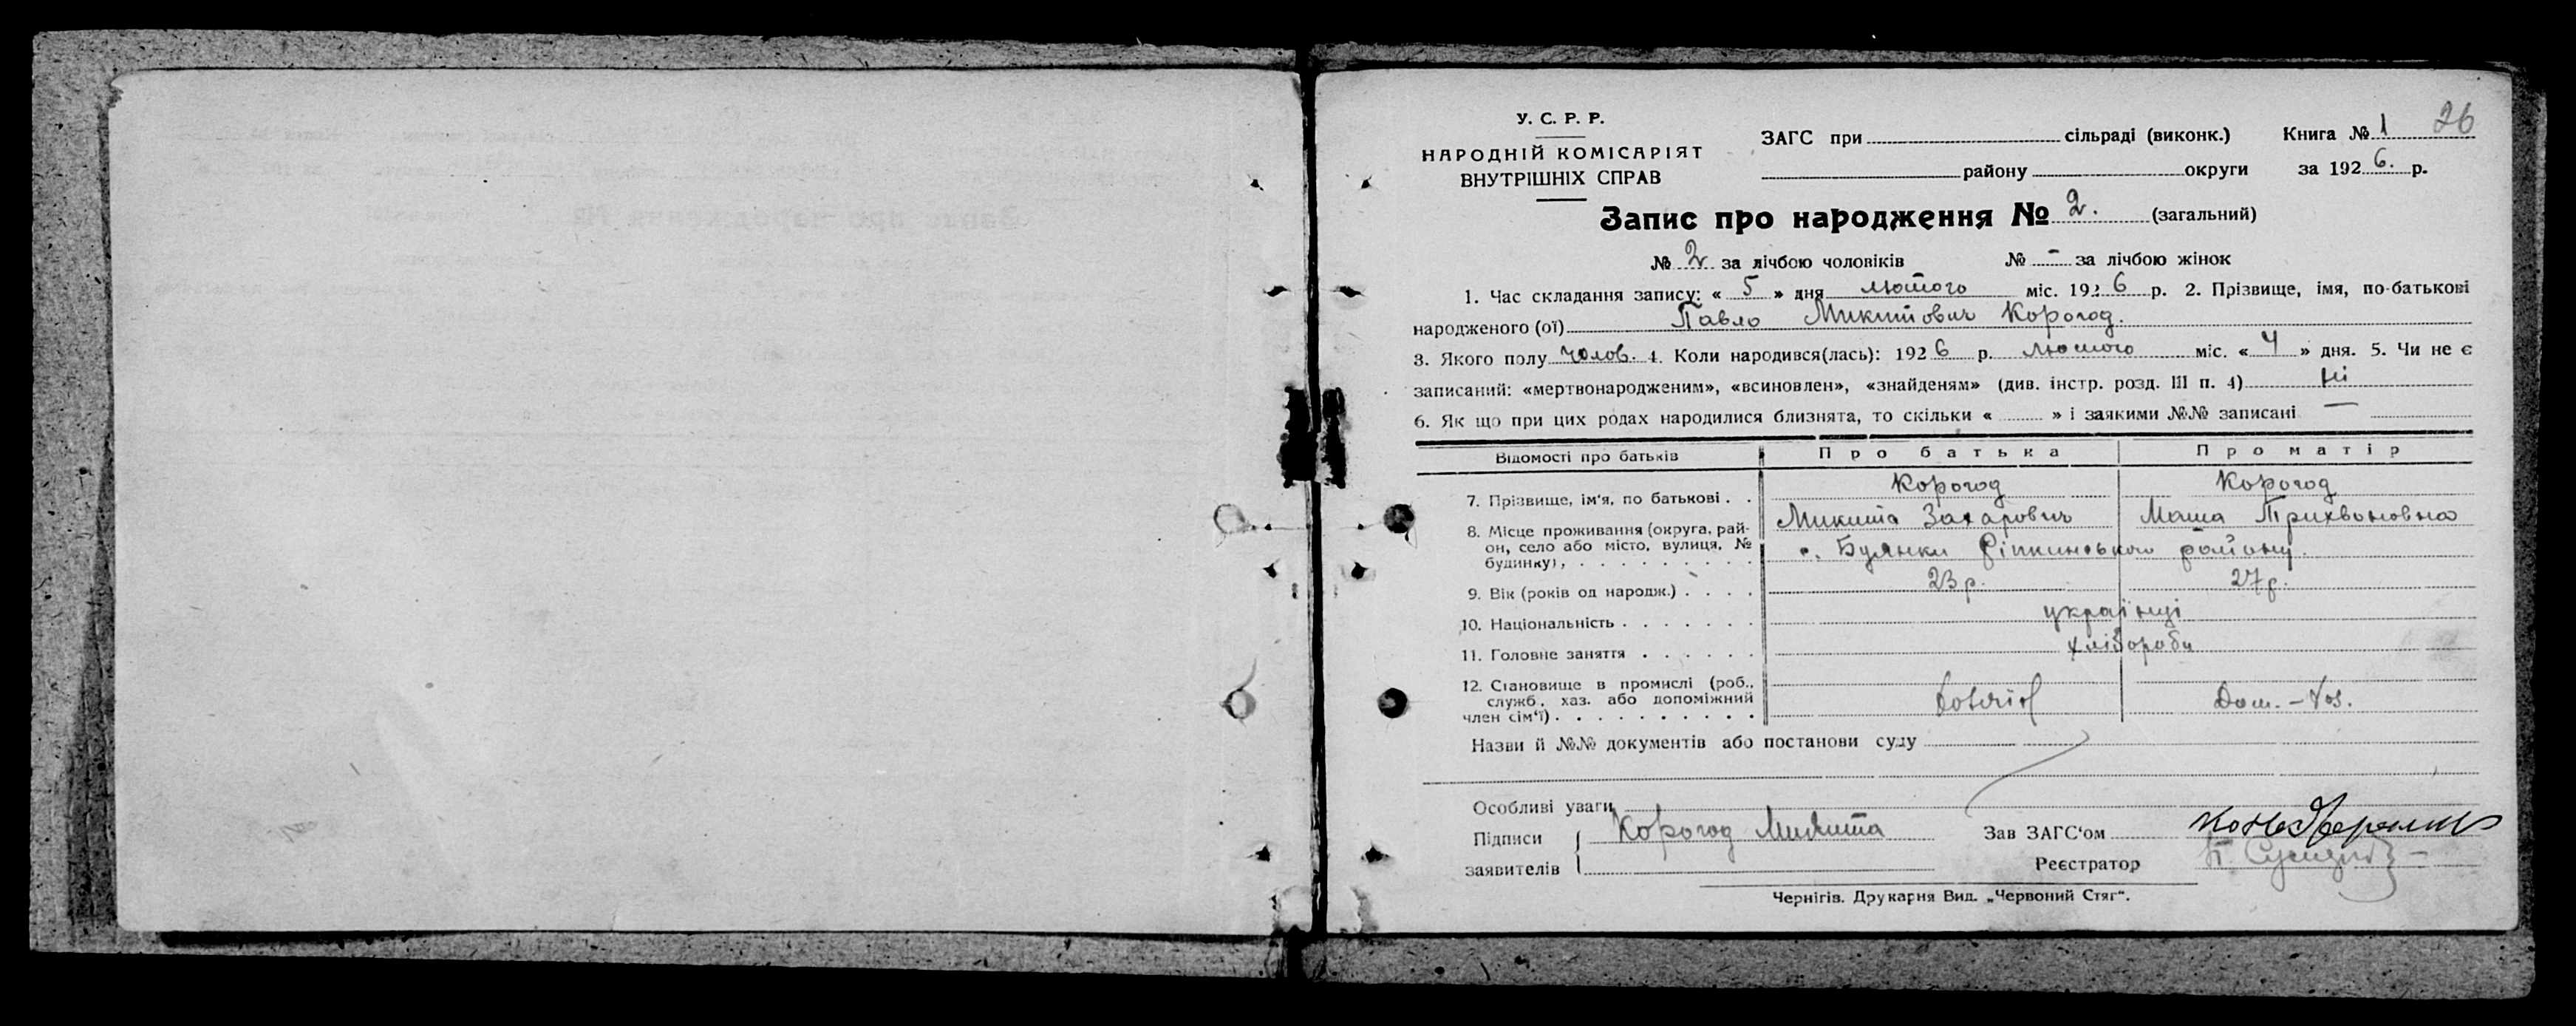 26
У. С. Р. Р.
НАРОДНІЙ КОМІСАРІЯТ
ВНУТРІШНІХ СПРАВ
ЗАГС при сільраді (виконк.) Книга № 1
району округи за 1926. р.
Запис про народження № 2. (загальний)
№ 2 за лічбою чоловіків № - за лічбою жінок
1. Час складання запису: « 5 » дня лютого міс. 1926 р. 2. Прізвище, імя, по-батькові
народженого (ої) Павло Микитович Корогод.
3. Якого полу чолов. 4. Коли народився(лась): 1926 р. лютого міс. « 4 » дня. 5. Чи не є
записаний: «мертвонародженим», «всиновлен», «знайденям» (див. інстр. розд. III п. 4) ні
6. Як що при цих родах народилися близнята, то скільки « » і заякими №№ записані —
Відомості про батьків Про батька Про матір
7. Прізвище, ім'я, по батькові . . Корогод Корогод
Микита Захарович Маша Трихвоновна
8. Місце проживання (округа, рай-
он, село або місто, вулиця, №
будинку), . . . . . . . . . с. Буянки Ріпкинського району.
9. Вік (років од народж.) . . . . 23 р. 27 р.
10. Національність . . . . . . . українці
11. Головне заняття . . . . . . хлібороби
12. Становище в промислі (роб.,
служб, хаз. або допоміжний
член сім'ї) . . . . . . . . . . Дом. –
Назви й №№ документів або постанови суду
Особливі уваги
Підписи Корогод Микита Зав ЗАГС'ом
заявителів Реєстратор
Чернігів. Друкарня Вид. „Червоний Стяг".